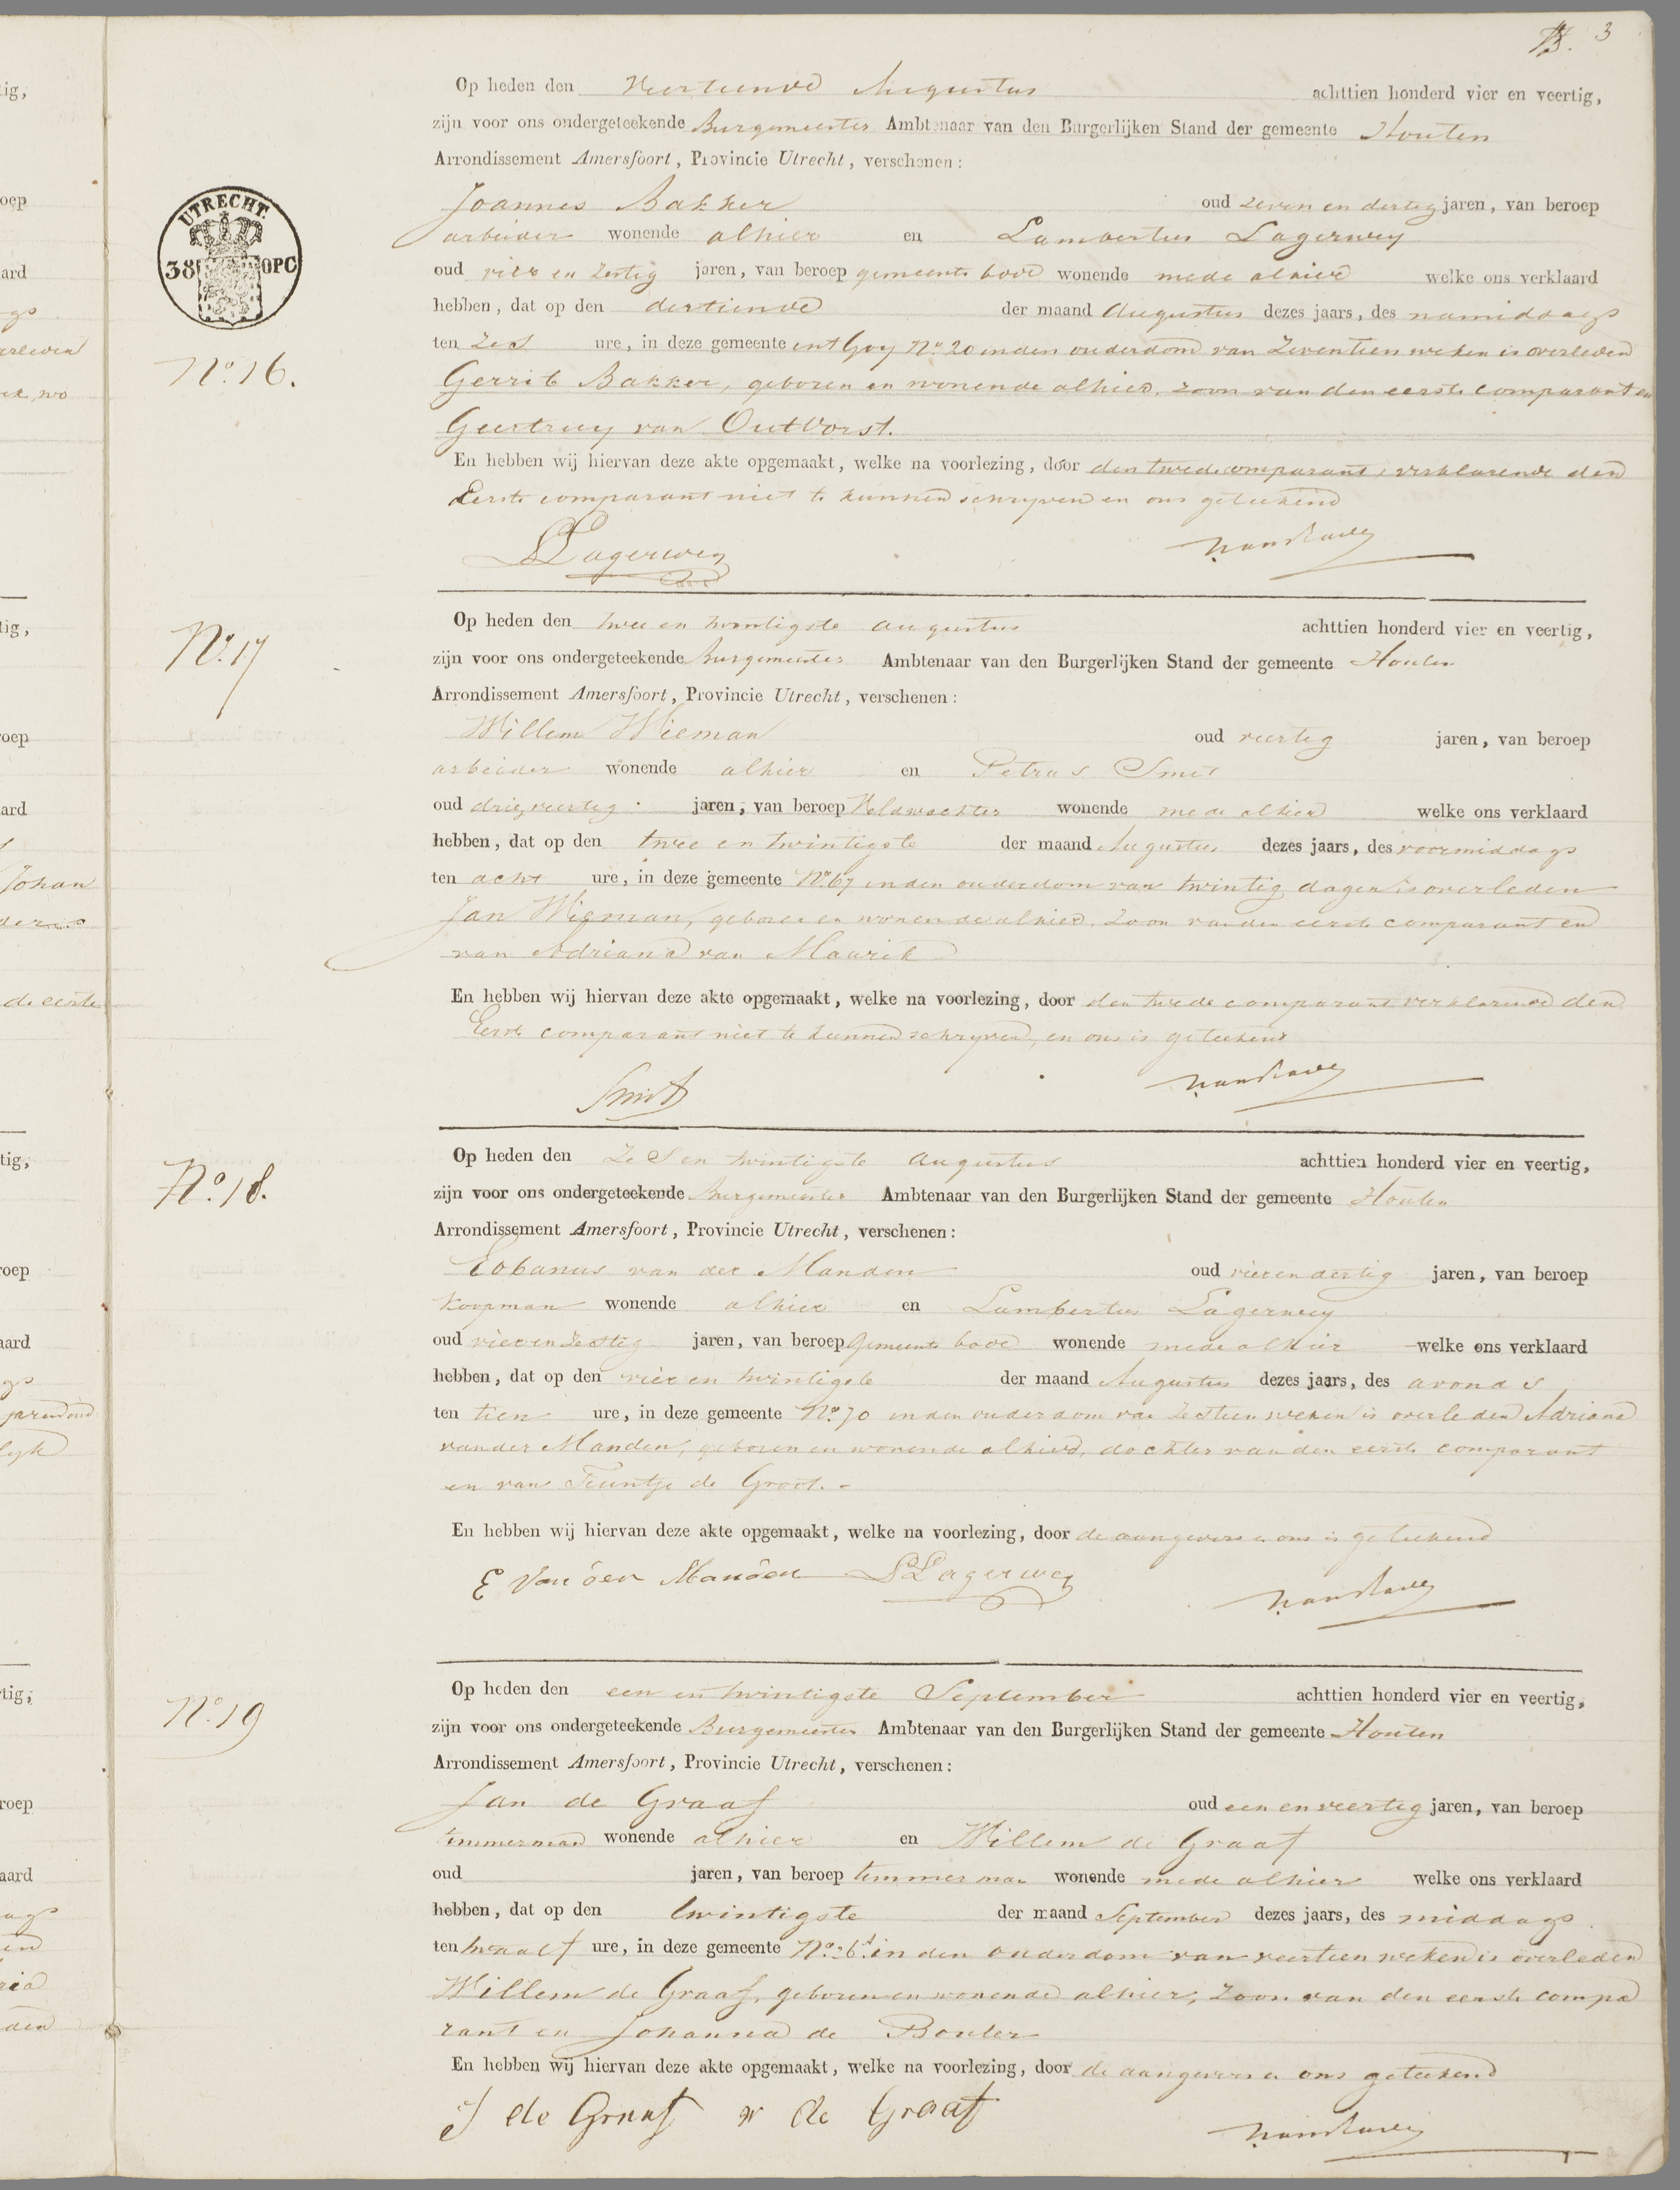 3
Op heden den Veertiende Augustus achttien honderd vier en veertig,
zijn voor ons ondergeteekende Burgemeester Ambtenaar van den Burgerlijken Stand der gemeente Houten
Arrondissement Amersfoort, Provincie Utrecht, verschenen:
Joannes Bakker oud zeven en dertig jaren, van beroep
arbeider wonende alhier en Lambertus Lagerwey
oud vier en zestig jaren, van beroep gemeente bode wonende mede alhier welke ons verklaard
hebben, dat op den dertiende der maand Augustus dezes jaars, des namiddags
ten zes ure, in deze gemeente int Goy No. 20 in den ouderdom van zeventien weken is overleden
Gerrit Bakker, geboren en wonende alhier, zoon van den eerste comparant en
Geertruy van Outvorst.
En hebben wij hiervan deze akte opgemaakt, welke na voorlezing, door den twede comparant, verklarende den
Eerste comparant niet te kunnen schryven en ons geteekend
LLagerwey
UTRECHT
38 OPC
No. 16.
Op heden den twee en twintigste augustus achttien honderd vier en veertig,
zijn voor ons ondergeteekende Burgemeester Ambtenaar van den Burgerlijken Stand der gemeente Houten
Arrondissement Amersfoort, Provincie Utrecht, verschenen:
Willem Wieman oud veertig jaren, van beroep
arbeider wonende alhier en Petrus Smit
oud drie, veertig jaren, van beroep Veldwachter wonende mede alhier welke ons verklaard
hebben, dat op den twee en twintigste der maand Augustus dezes jaars, des voormiddags
ten acht ure, in deze gemeente No. 67 in den ouderdom van twintig dagen is overleden
Jan Wieman, geboren en wonende alhier, zoon van den eerste comparant en
van Adriana van Maurik
En hebben wij hiervan deze akte opgemaakt, welke na voorlezing, door den twede comparant verklarende den
Eerste comparant niet te kunnen schryven, en ons is geteekend
Smit
No. 17
Op heden den Zes en twintigste augustus achttien honderd vier en veertig,
zijn voor ons ondergeteekende Burgemeester Ambtenaar van den Burgerlijken Stand der gemeente Houten
Arrondissement Amersfoort, Provincie Utrecht, verschenen:
Eobanus van der Manden oud vier en dertig jaren, van beroep
Koopman wonende alhier en Lambertus Lagerwey
oud vier en zestig jaren, van beroep Gemeente bode wonende mede alhier welke ons verklaard
hebben, dat op den vier en twintigste der maand Augustus dezes jaars, des avonds
ten tien ure, in deze gemeente No. 70 in den ouderdom van zestien weken is overleden Adriana
van der Manden, geboren en wonende alhier, dochter van den eerste comparant
en van Teuntje de Groot.
En hebben wij hiervan deze akte opgemaakt, welke na voorlezing, door de aangevers en ons is geteekend
E Van der Manden LLagerwey
No. 18.
Op heden den een en twintigste September achttien honderd vier en veertig,
zijn voor ons ondergeteekende Burgemeester Ambtenaar van den Burgerlijken Stand der gemeente Houten
Arrondissement Amersfoort, Provincie Utrecht, verschenen:
Jan de Graaf oud een en veertig jaren, van beroep
timmerman wonende alhier en Willem de Graaf
oud jaren, van beroep timmerman wonende mede alhier welke ons verklaard
hebben, dat op den twintigste der maand September dezes jaars, des middags
ten twaalf ure, in deze gemeente in den ouderdom van veertien weken is overleden
Willem de Graaf, geboren en wonende alhier, zoon van den eerste compa
rant en Johanna de Bouter
En hebben wij hiervan deze akte opgemaakt, welke na voorlezing, door de aangevers en ons geteekend
J de Graaf W de Graaf
No. 19